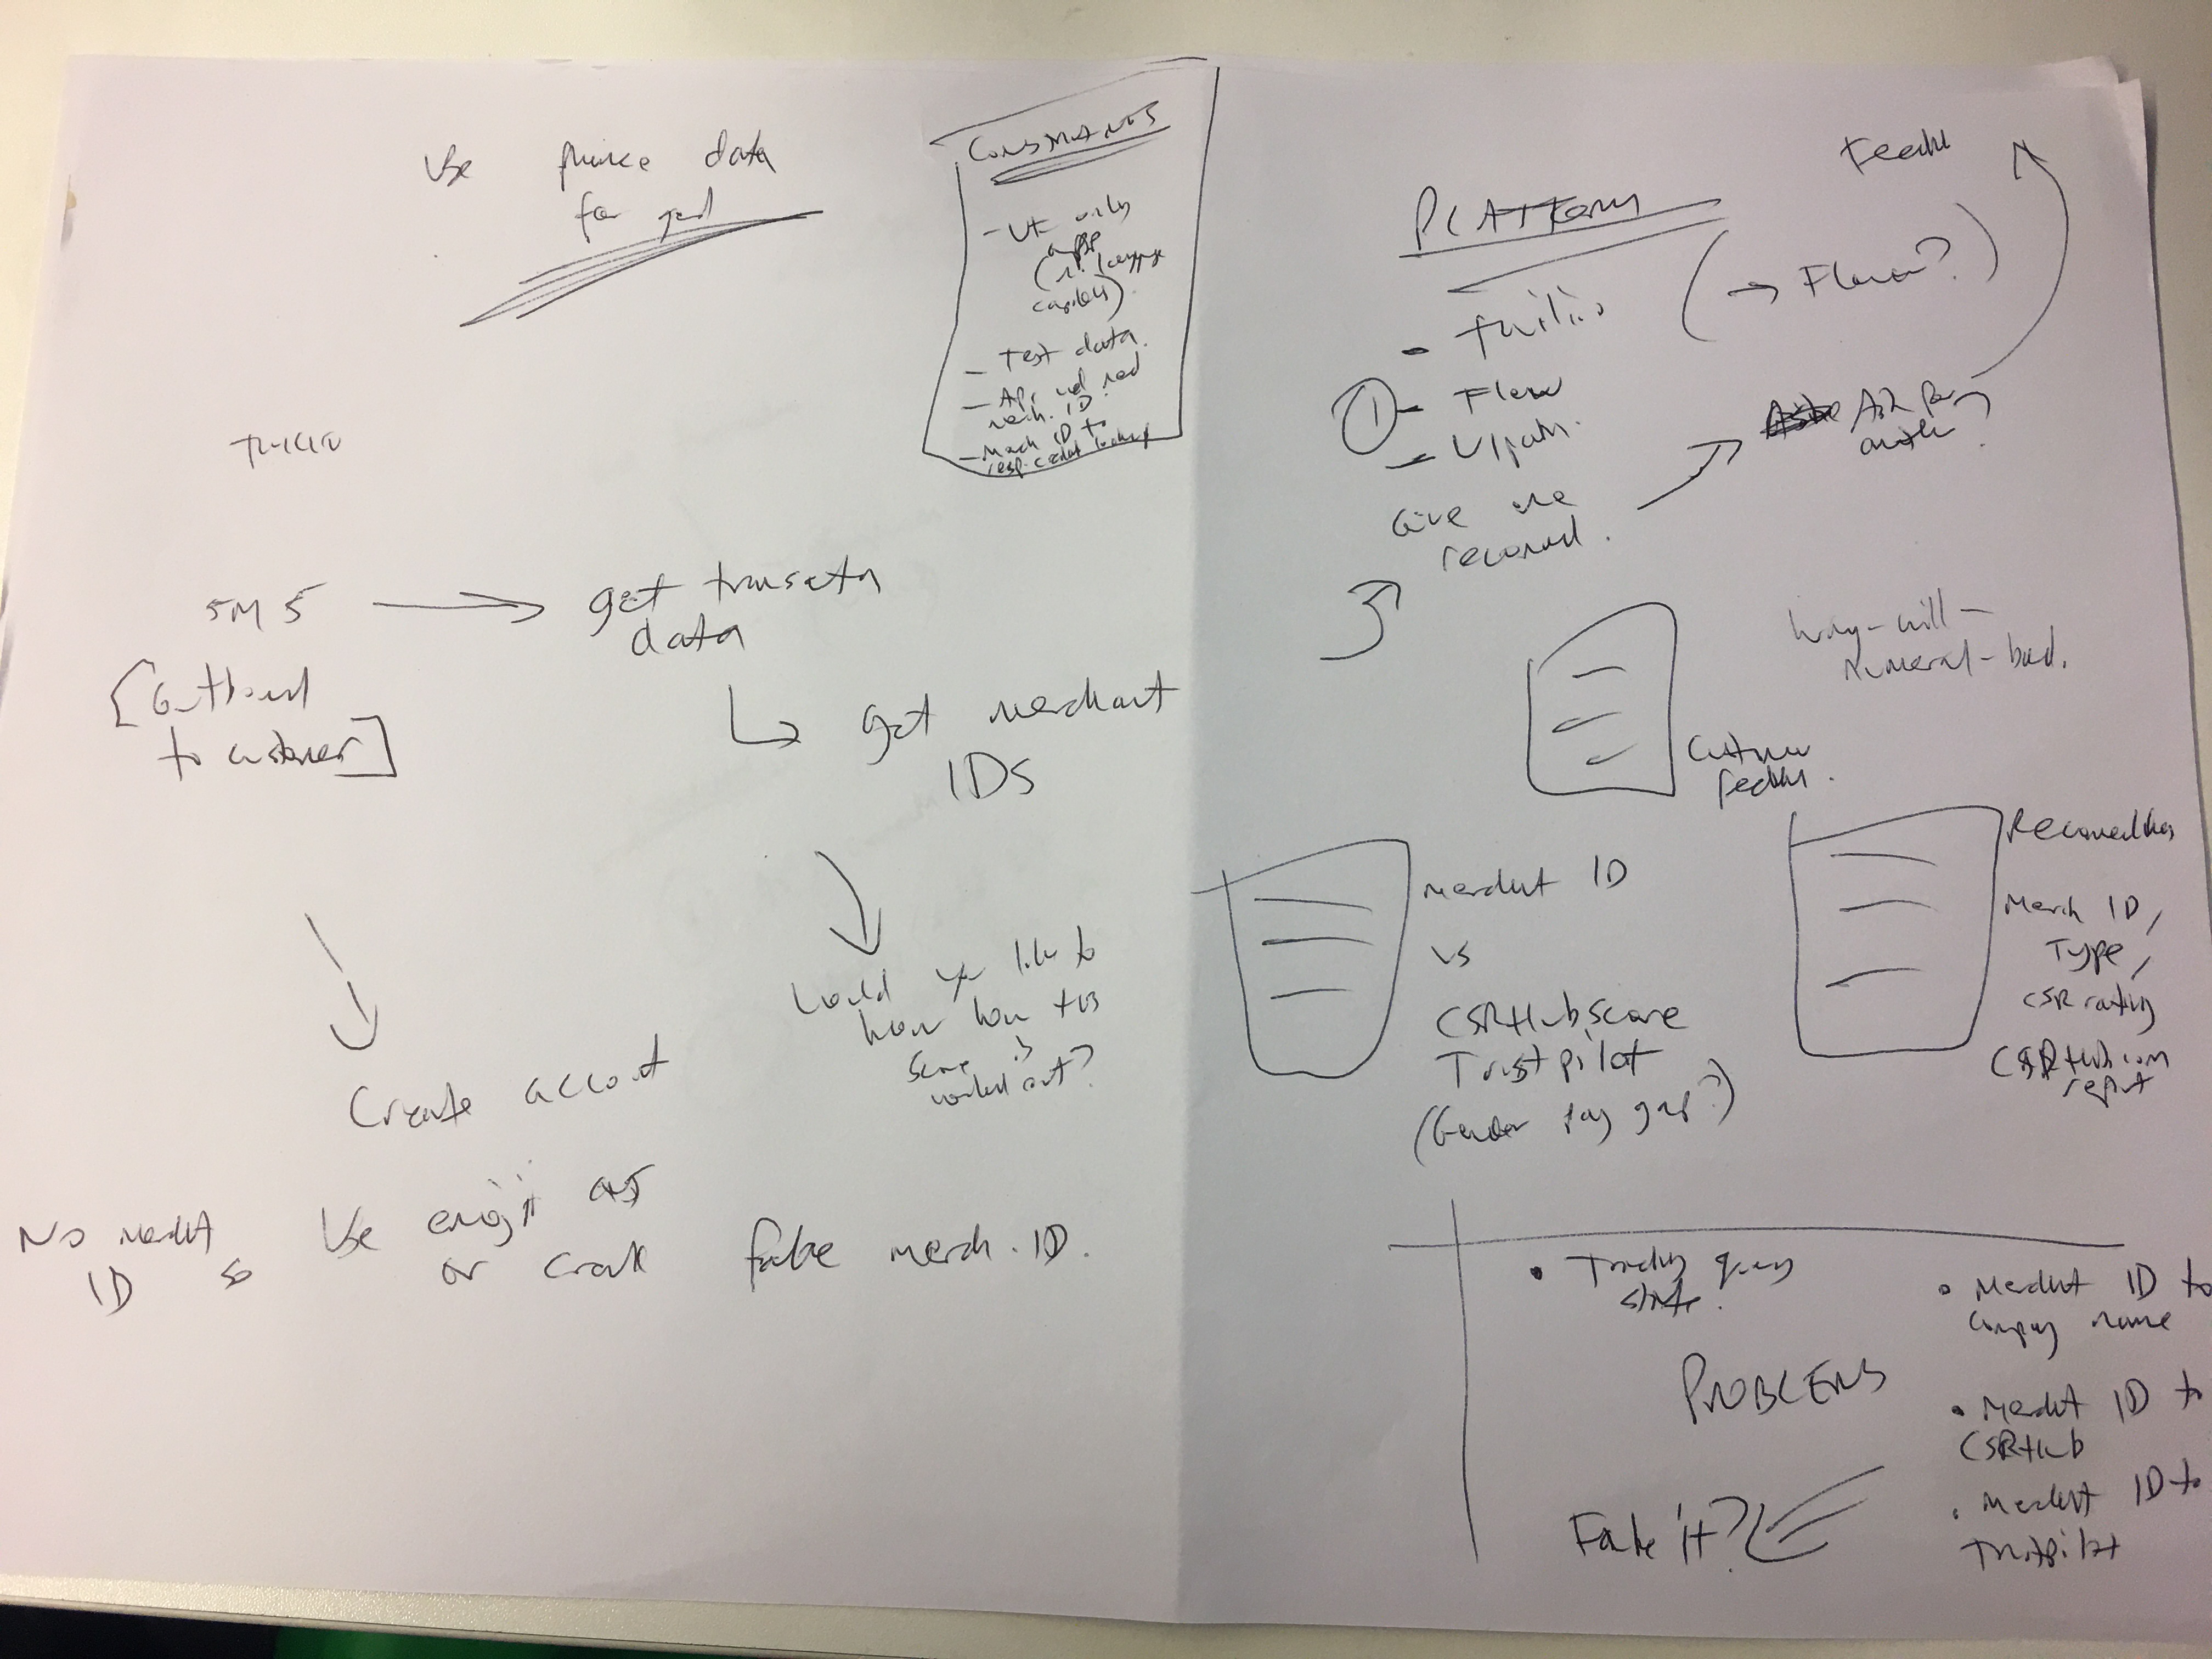 Use finance data
for good
CONSTRAINTS
- UK only
- Test data.
- API
merch. ID
- Merch ID to
Twilio
SMS
[Outbound
to customer]
get transactn
data
get merchant
IDs
Would you like to
know how this
score is
worked out?
Create account
No merchant
ID so
Use emoji as
or create fake merch. ID.
PLATFORM
- Twilio
(→ Flow?)
① - Flow
- Uipath.
Give me
recommend.
Ask for
another?
Feedbk
Customer
feedbk.
Merchant ID
vs
CSRHub score
Trustpilot
(Gender pay gap?)
Recommendations
Merch ID,
Type,
CSR rating
CSRHub.com
report
• Tracking query
state.
PROBLEMS
• Merchant ID to
company name
• Merchant ID to
CSRHub
• Merchant ID to
Trustpilot
Fake it?